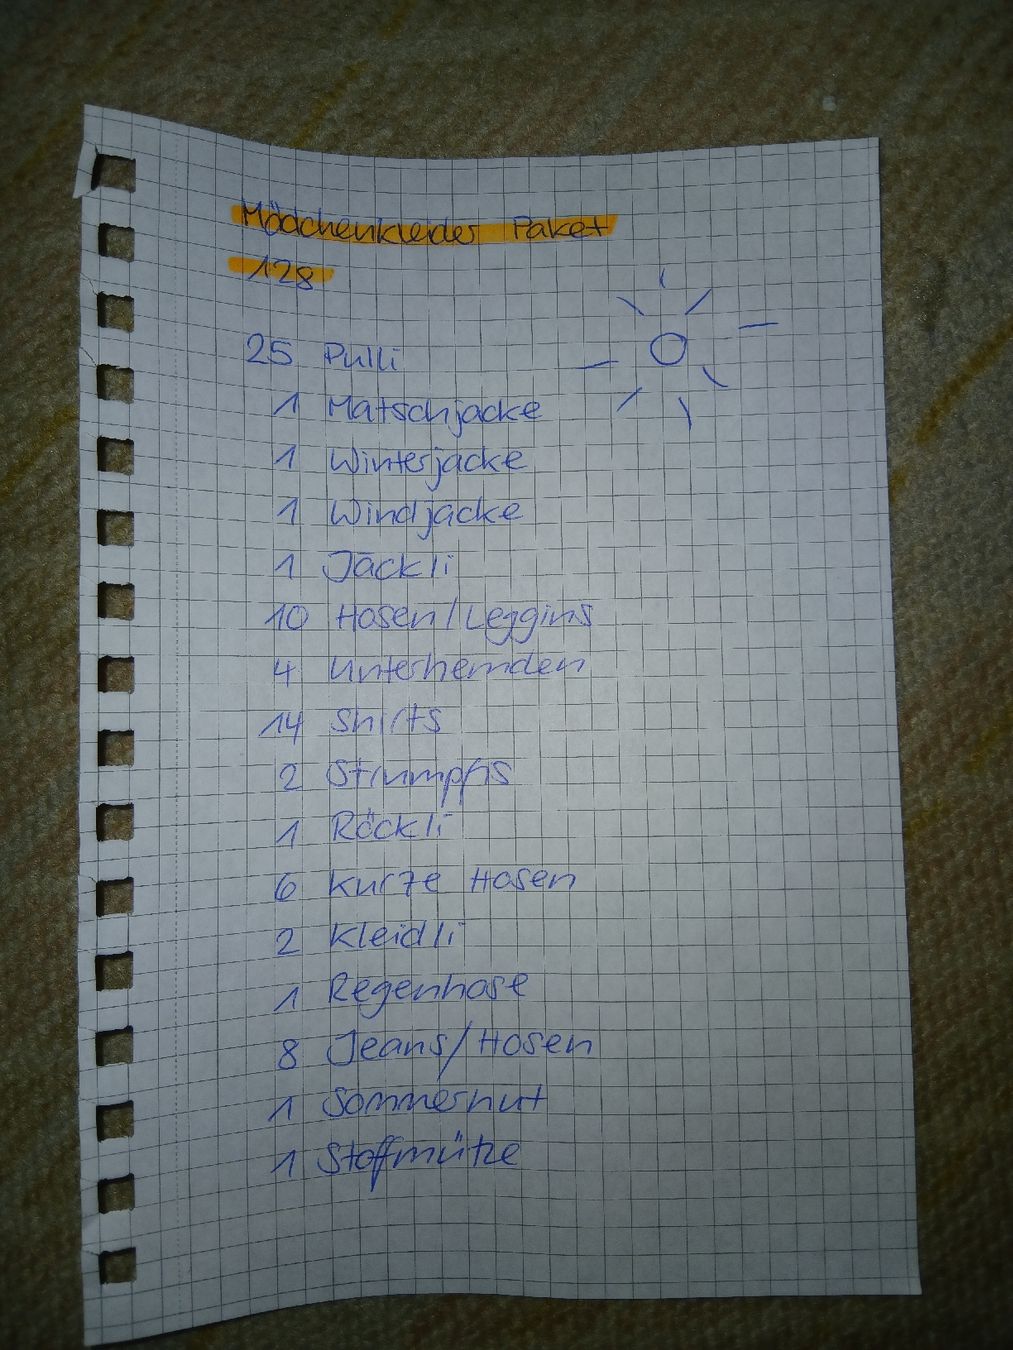 Mädchenkleider Paket
128
25 Pulli
1 Matschjacke
1 Winterjacke
1 Windjacke
1 Jäckli
10 Hosen/Leggins
4 Unterhemden
14 Shirts
2 Strumpfis
1 Röckli
6 Kurze Hosen
2 Kleidli
1 Regenhose
8 Jeans/Hosen
1 Sommerhut
1 Stoffmütze